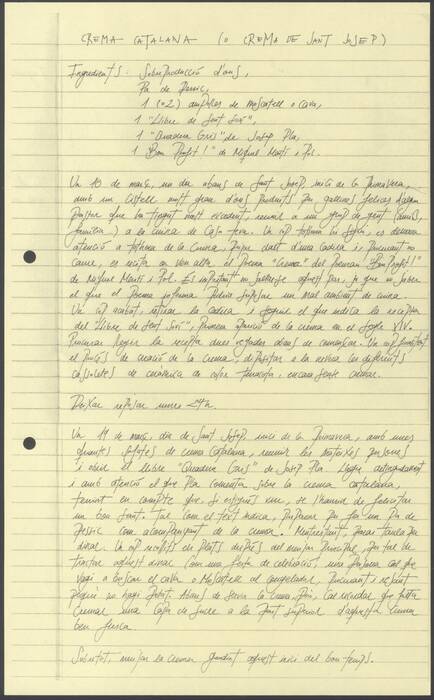 CREMA CATALANA (O CREMA DE SANT JOSEP)
Ingredients: Sobreproducció d'ous,
Pa de Pessic,
1 (o 2) ampolles de moscatell o cava,
1 "Llibre de Sent Soví",
1 "Quadern Gris" de Josep Pla,
1 "Bon Profit!" de Miquel Martí i Pol.
Un 18 de març, un dia abans de Sant Josep, inici de la Primavera,
amb un cistell mitt gran d'ous produïts per gallines felices d'algun
pastor que ho tingui molt evident, reunir a un grup de gent (amics,
família...) a la cuina de casa teva. Un cop tothom hi sigui, es demana
atenció a tothom de la cuina. Pujar dalt d'una cadira i, procurant no
caure, es recita en veu alta el poema "Crema" del poemari "Bon Profit!"
de Miquel Martí i Pol. És important no saltar-se aquest pas, ja que no saber
el que el poema informa podria suposar un mal ambient de cuina.
Un cop acabat, retirar la cadira i seguir el que indica la recepta
del Llibre de Sent Soví, primera aparició de la crema en el segle XIV.
Procurar llegir la recepta dues vegades abans de començar. Un cop finalitzat
el procés de creació de la crema, dipositar a la nevera les diferents
cassoletes de ceràmica de color terracota, encara sense cremar.
Deixar reposar unes 24h.
Un 19 de març, dia de Sant Josep, inici de la Primavera, amb unes
quantes safates de crema catalana, reunir les mateixes persones
i obrir el llibre "Quadern Gris" de Josep Pla. Llegir detingudament
i amb atenció el que Pla comenta sobre la crema catalana,
tenint en compte que, si estigués viu, se l'hauria de felicitar
un bon Sant. Tal com el text indica, preparar per fer un Pa de
Pessic com a acompanyant de la crema. Mentrestant, parar taula per
dinar. Un cop recollits els plats després del menjar principal, per tal de
tractar aquest dinar com una festa de celebració, una persona cal que
vagi a buscar el cava o Moscatell al congelador, procurant que
ningú no hagi fugit. Abans de servir la crema freda, cal recordar que falta
cremar una capa de sucre a la part superior d'aquesta crema
ben fresca.
Sobretot, menjar la crema gaudint aquest inici del bon temps.